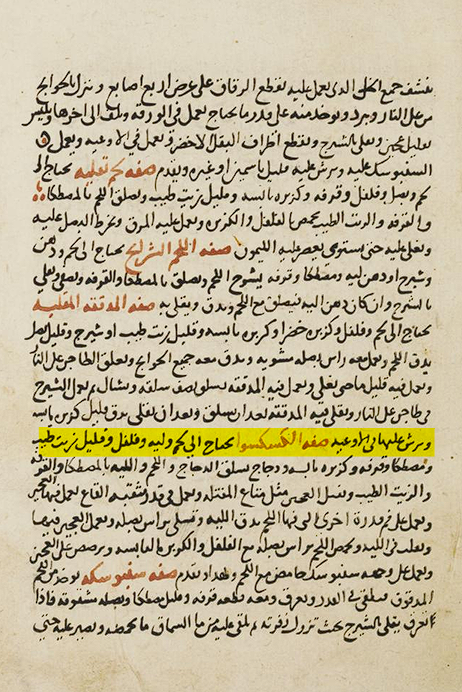 ينشف جميع الكل الذي يعمل عليه يقطع الرقاق على عرض اربع اصابع وتنزل بالحوايج
من على النار ويبرد ويوخذ منه على قدر ما يحتاج يعمل في الورقه ويلف الى اخرها
بقليل عجين ويقلى بالشيرج ويقطع اطراف البقل الاخضر ويعمل في الاوعيه ويعمل
السنبوسك عليه ويرش عليه قليل ياسمين او غيره ويقدم صفه لحم تقليه يحتاج الى
لحم وبصل وفلفل وقرفه وكزبره يابسه وقليل زيت طيب ويصلق اللحم بالمصطكا
والقرفه والزيت الطيب يحمص بالفلفل والكزبره ويعمل عليه المرق ويخرط البصل عليه
ويغلى عليه حتى يستوي يعصر عليه الليمون صفه اللحم الشرايح يحتاج الى لحم ودهن
وشيرج او دهن اليه ومصطكا وقرفه يشرح اللحم ويصلق بالمصطكا والقرفه ويصفى ويقلى
بالشيرج وان كان دهن اليه فيصلق مع اللحم ويدق ويقلى به صفه المدققه المقليه
يحتاج الى لحم وفلفل وكزبره خضرا وكزبره يابسه وقليل زيت طيب او شيرج وقليل بصل
يدق اللحم ويعمل معه راس بصله مشويه ويدق معه جميع الحوايج ويعلق الطاجن على النار
ويعمل فيه قليل ما حتى يغلى ويعمل فيه المدققه يسلق نصف سلقه ويشال ثم يعمل الشيرج
في طاجن على النار ويقلى فيه المدققه بعد ان يسلق وبعد ان يقلى يدق قليل كزبره يابسه
ويرش عليها في الاوعيه صفه الكسكسوا يحتاج الى لحم وليه وفلفل وقليل زيت طيب
ومصطكا وقرفه وكزبره يابسه ودجاج يسلق الدجاج واللحم والليه بالمصطكا والقرفه
والزيت الطيب ويفتل العجين مثل المفتله ويعمل في قدر القاع يعمل فيها
ويعمل على فم قدره اخرى الى فيها اللحم يدق الليه وتسلى براس بصله ويعمل العجين فيها
ويقلب في الليه ويحمص اللحم براس بصله مع الفلفل والكزبره اليابسه ويرصص على العجين
ويعمل على وجهه سنبوسك حامض مع اللحم ويقدم صفه سنبوسكه يوخذ من اللحم
المدقوق فيلقى في القدر ويعرق ومعه قطعه قرفه وقليل مصطكا وبصله مشقوقه فاذا
عرق يقلى بالشيرج بحيث تزول زفرته ثم يلقى عليه من ما السماق ما يحمضه ويصبر عليه حتى